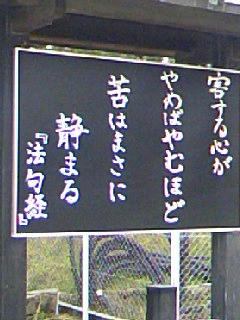 害する心が
やめばやむほど
苦はまさに
静まる
『法句経』